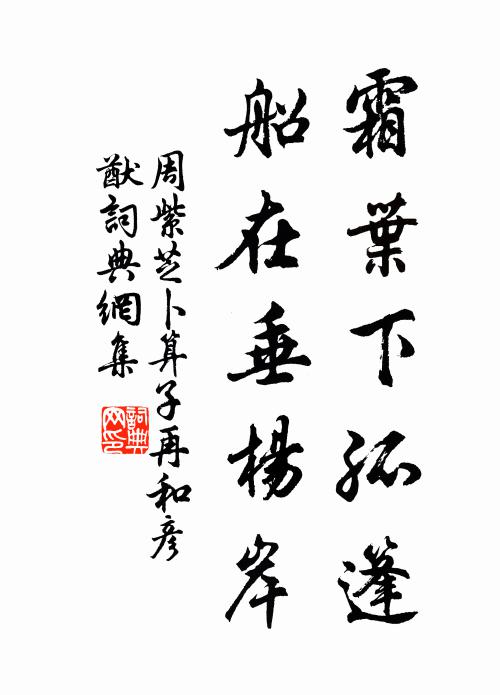 霜葉下孤篷
船在垂楊岸
周紫芝卜算子再和彥
猷詞典網集
詞典
网印